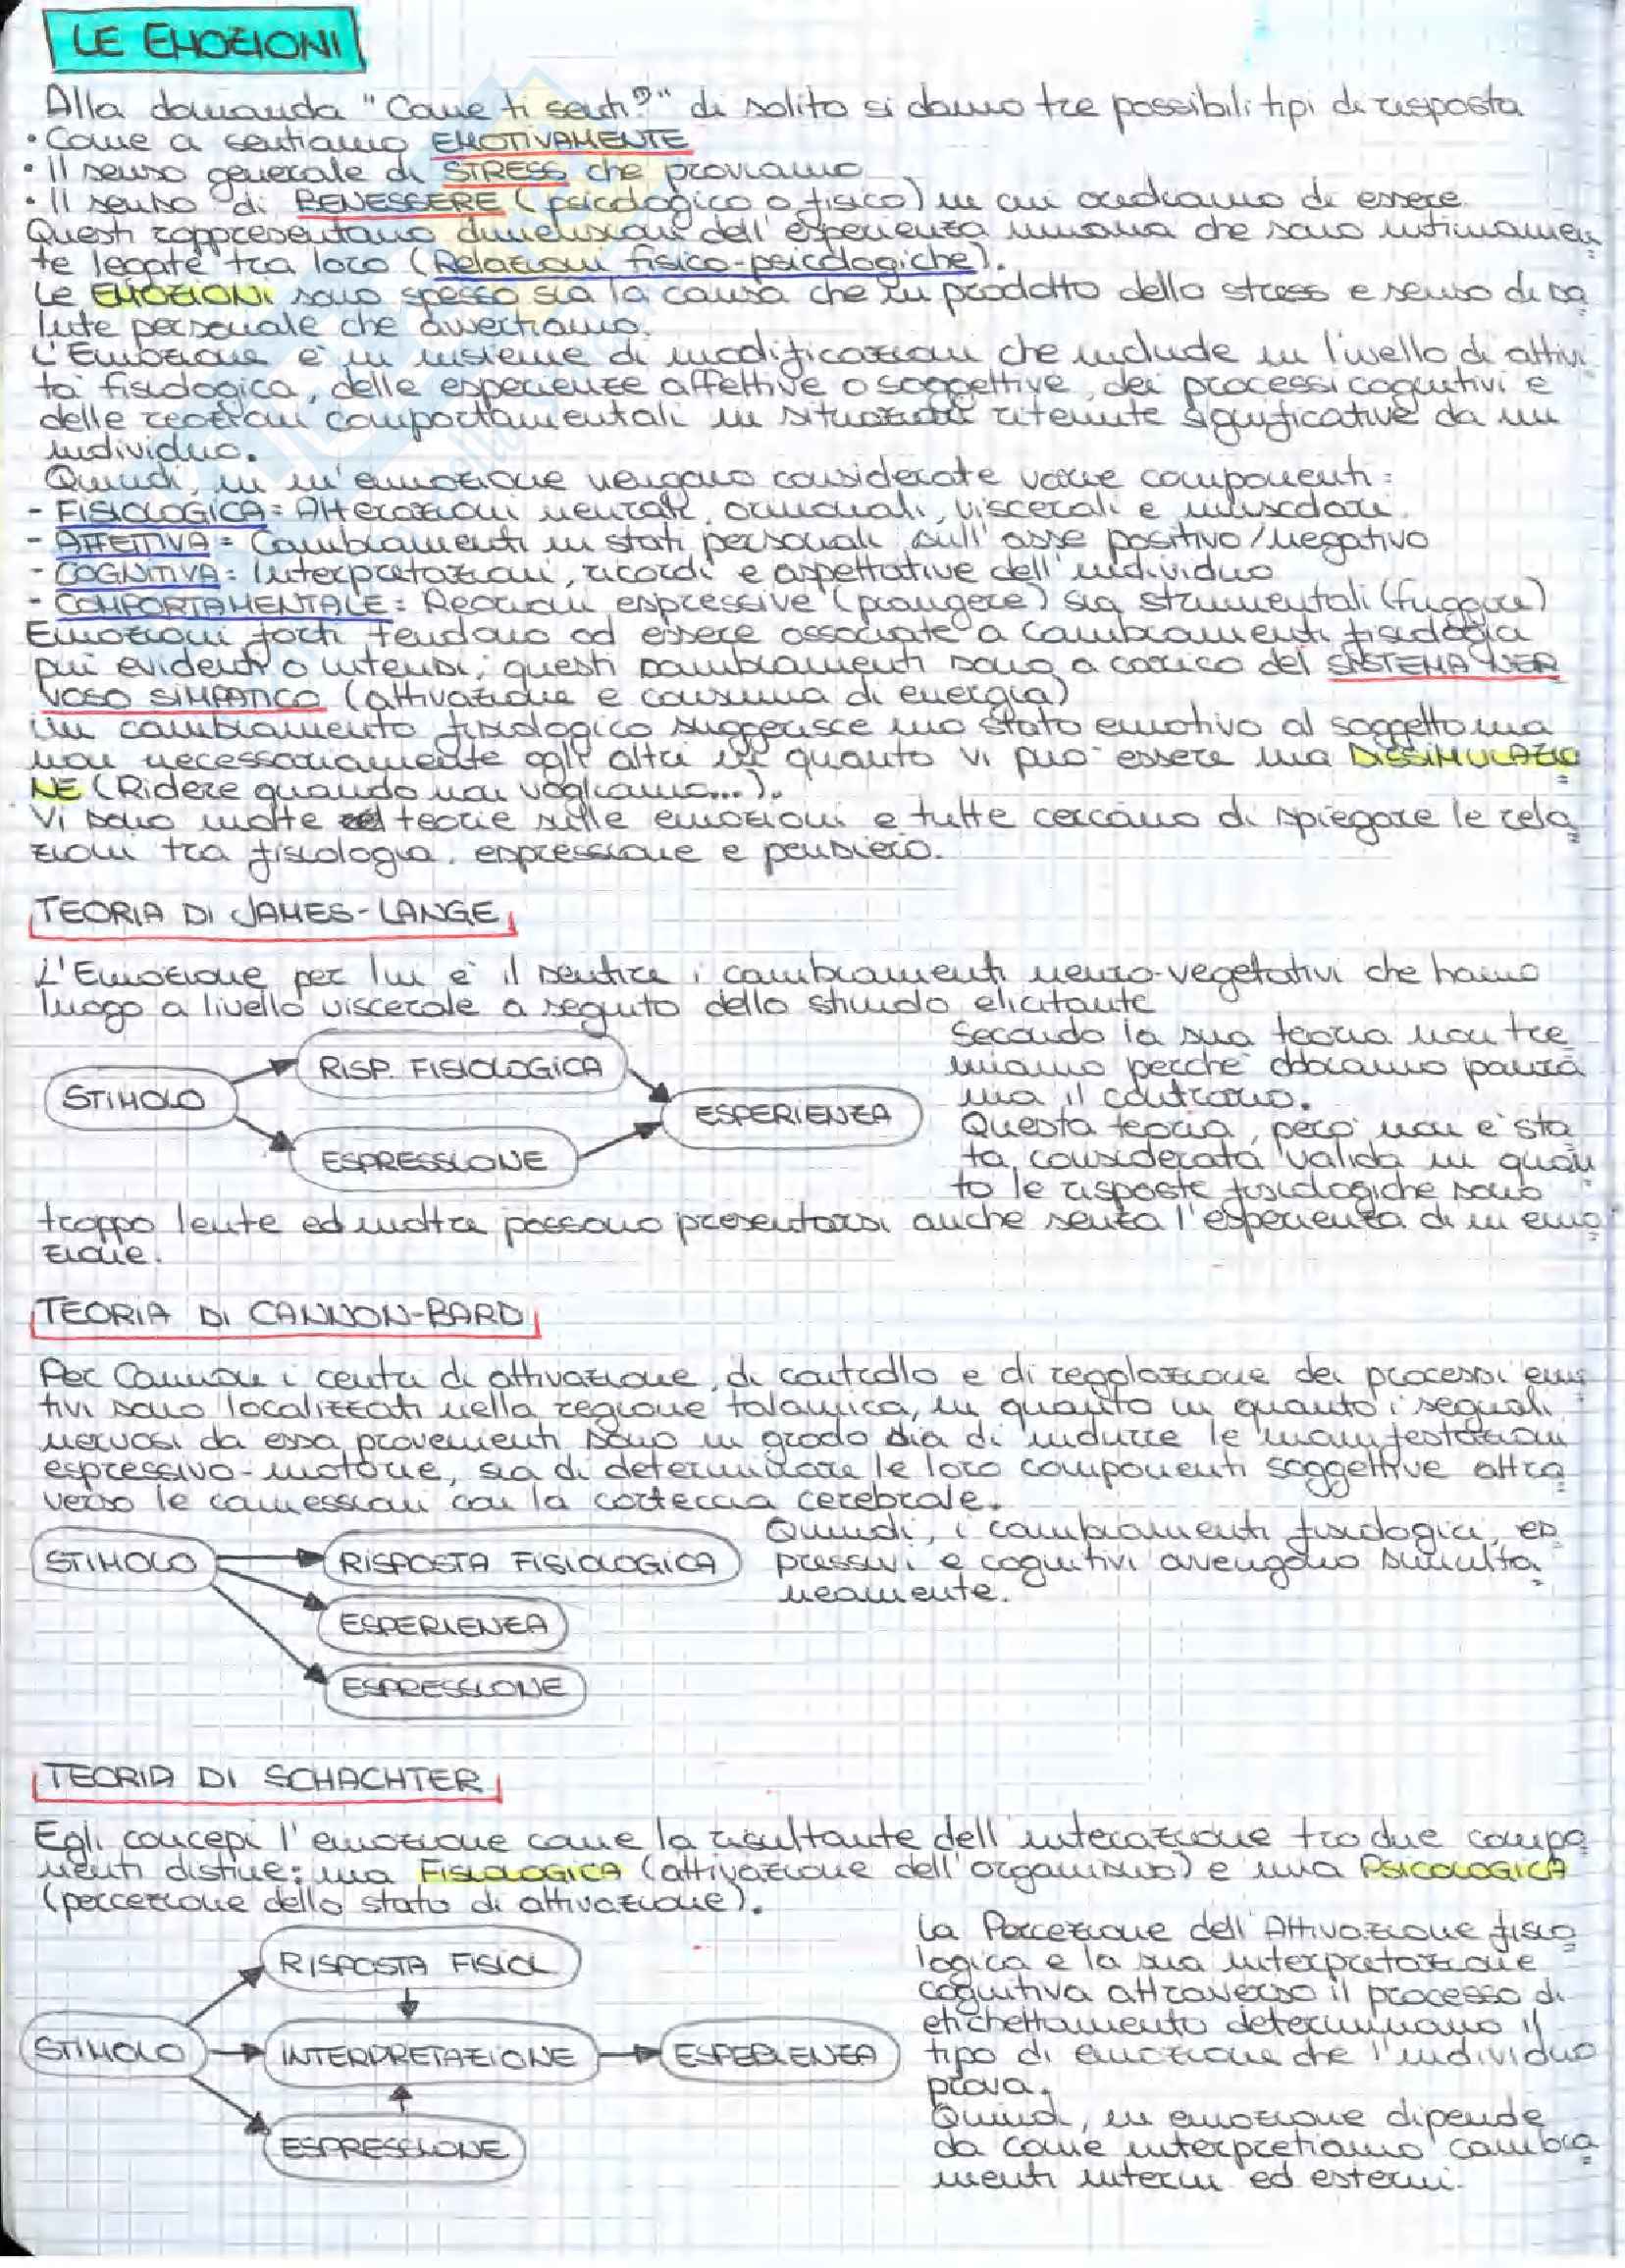 LE EMOZIONI
Alla domanda "Come ti senti?" di solito si danno tre possibili tipi di risposta
• Come ci sentiamo EMOTIVAMENTE
• Il senso generale di STRESS che proviamo
• Il senso di BENESSERE (psicologico o fisico) in cui crediamo di essere
Questi rappresentano dimensioni dell'esperienza umana che sono intimamen
te legate tra loro (Relazioni fisico-psicologiche).
Le EMOZIONI sono spesso sia la causa che un prodotto dello stress e senso di sa
lute personale che avvertiamo.
L'Emozione è un insieme di modificazioni che include un livello di attivi
tà fisiologica, delle esperienze affettive o soggettive, dei processi cognitivi e
delle reazioni comportamentali in situazioni ritenute significative da un
individuo.
Quindi, in un'emozione vengono considerate varie componenti:
- FISIOLOGICA= Alterazioni neurali, ormonali, viscerali e muscolari.
- AFFETTIVA= Cambiamenti in stati personali sull'asse positivo/negativo
- COGNITIVA= Interpretazioni, ricordi e aspettative dell'individuo
- COMPORTAMENTALE= Reazioni espressive (piangere) sia strumentali (fuggire)
Emozioni forti tendono ad essere associate a cambiamenti fisiologici
più evidenti o intensi; questi cambiamenti sono a carico del SISTEMA NER
VOSO SIMPATICO (attivazione e consumo di energia)
Un cambiamento fisiologico suggerisce uno stato emotivo al soggetto ma
non necessariamente agli altri in quanto vi può essere una DISSIMULAZIO
NE (Ridere quando non vogliamo...).
Vi sono molte teorie sulle emozioni e tutte cercano di spiegare le rela
zioni tra fisiologia, espressione e pensiero.
TEORIA DI JAMES-LANGE
L'Emozione per lui è il sentire i cambiamenti neuro-vegetativi che hanno
luogo a livello viscerale a seguito dello stimolo elicitante
STIMOLO
RISP. FISIOLOGICA
ESPRESSIONE
ESPERIENZA
Secondo la sua teoria non tre
miamo perchè abbiamo paura
ma il contrario.
Questa teoria, però, non è sta
ta considerata valida in quan
to le risposte fisiologiche sono
troppo lente ed inoltre possono presentarsi anche senza l'esperienza di un emo
zione.
TEORIA DI CANNON-BARD
Per Cannon i centri di attivazione, di controllo e di regolazione dei processi emo
tivi sono localizzati nella regione talamica, in quanto in quanto i segnali
nervosi da essa provenienti sono in grado sia di indurre le manifestazioni
espressivo-motorie, sia di determinare le loro componenti soggettive attra
verso le connessioni con la corteccia cerebrale.
STIMOLO
RISPOSTA FISIOLOGICA
ESPERIENZA
ESPRESSIONE
Quindi, i cambiamenti fisiologici, es
pressivi e cognitivi avvengono simulta
neamente.
TEORIA DI SCHACHTER
Egli concepì l'emozione come la risultante dell'interazione tra due compo
nenti distine: una FISIOLOGICA (attivazione dell'organismo) e una PSICOLOGICA
(percezione dello stato di attivazione).
STIMOLO
RISPOSTA FISIOL
INTERPRETAZIONE
ESPRESSIONE
ESPERIENZA
La Percezione dell'Attivazione fisio
logica e la sua interpretazione
cognitiva attraverso il processo di
etichettamento determinano il
tipo di emozione che l'individuo
prova.
Quindi, un emozione dipende
da come interpretiamo cambia
menti interni ed esterni.